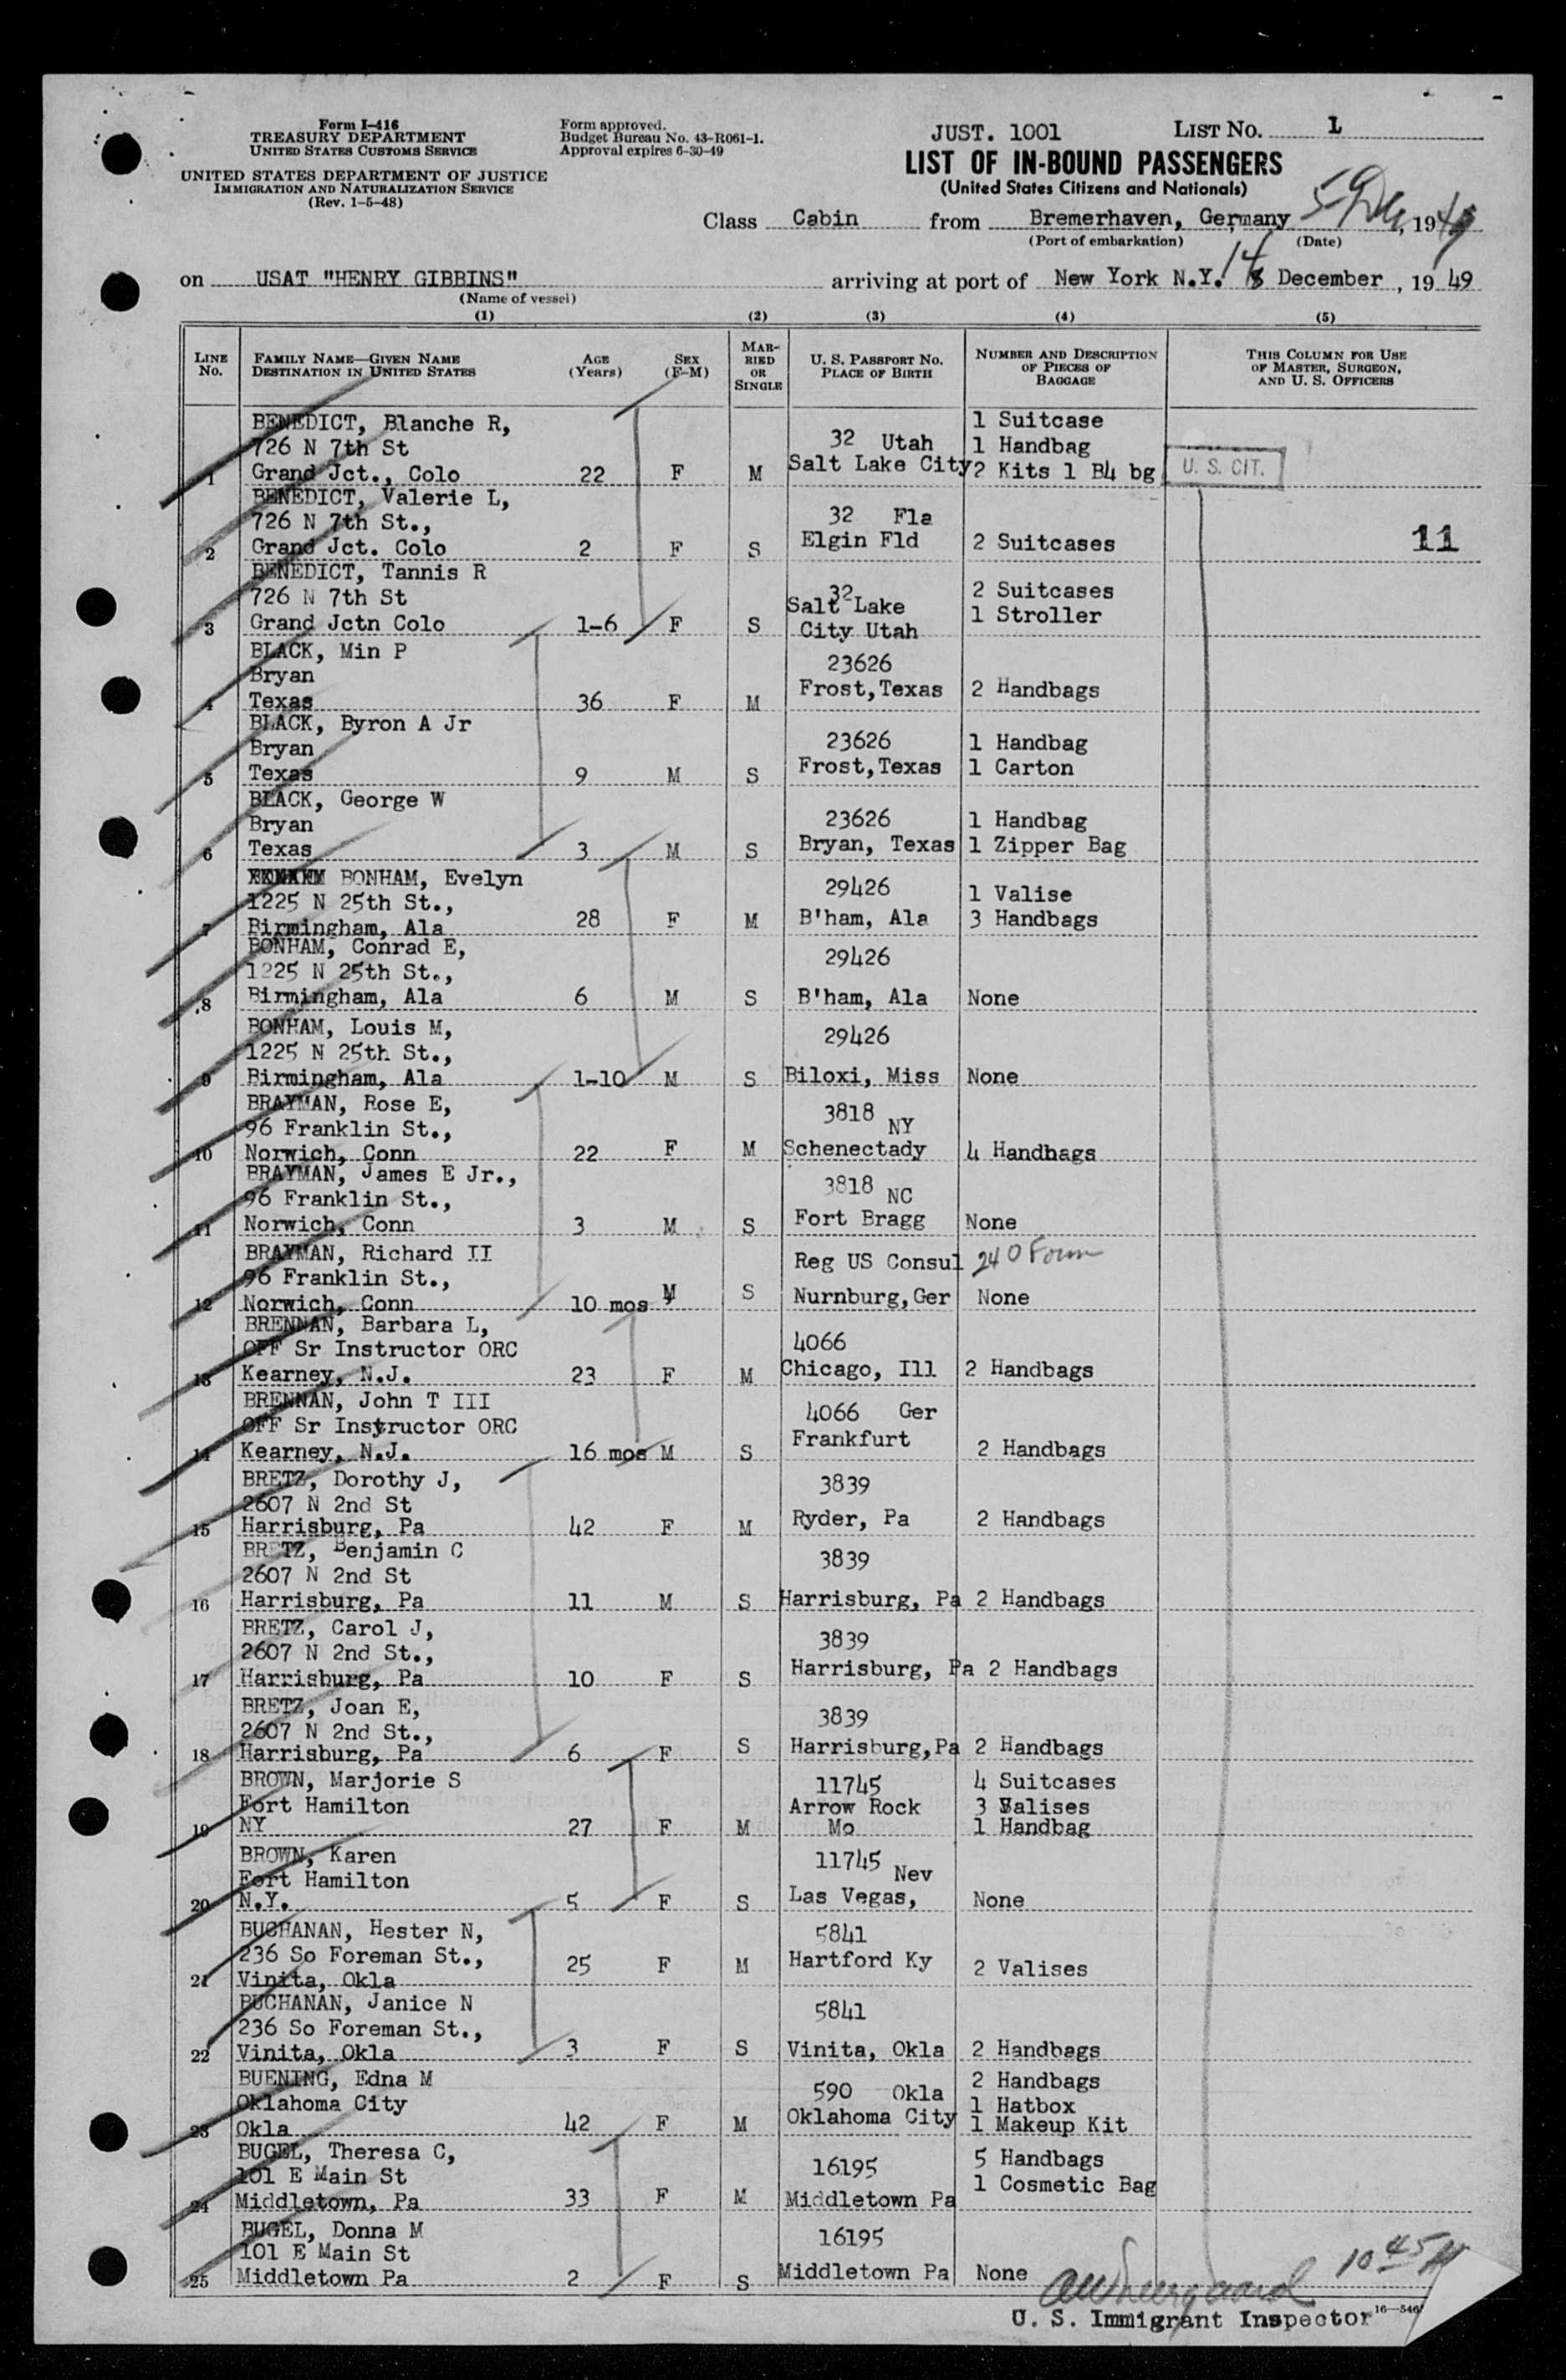 Form I-416
TREASURY DEPARTMENT
UNITED STATES CUSTOMS SERVICE
UNITED STATES DEPARTMENT OF JUSTICE
IMMIGRATION AND NATURALIZATION SERVICE
(Rev. 1-5-48)
Form approved.
Budget Bureau No. 43-R061-1.
Approval expires 6-30-49
JUST. 1001
LIST NO. L
LIST OF IN-BOUND PASSENGERS
(United States Citizens and Nationals)
Class Cabin from Bremerhaven, Germany 5 Dec, 1949
(Port of embarkation) (Date)
on USAT "HENRY GIBBINS" arriving at port of New York N.Y. 14 December, 19 49
(Name of vessel)
(1) (2) (3) (4) (5)
LINE NO. FAMILY NAME—GIVEN NAME DESTINATION IN UNITED STATES AGE (Years) SEX (F-M) MARRIED OR SINGLE U. S. PASSPORT NO. PLACE OF BIRTH NUMBER AND DESCRIPTION OF PIECES OF BAGGAGE THIS COLUMN FOR USE OF MASTER, SURGEON, AND U. S. OFFICERS
BENEDICT, Blanche R, 1 Suitcase
726 N 7th St 32 Utah 1 Handbag
1 Grand Jct., Colo 22 F M Salt Lake City 2 Kits 1 B4 bg U. S. CIT.
BENEDICT, Valerie L,
726 N 7th St., 32 Fla
2 Grand Jct. Colo 2 F S Elgin Fld 2 Suitcases 11
BENEDICT, Tannis R
726 N 7th St 32 Salt Lake 2 Suitcases
3 Grand Jctn Colo 1-6 F S City Utah 1 Stroller
BLACK, Min P
Bryan 23626
4 Texas 36 F M Frost,Texas 2 Handbags
BLACK, Byron A Jr
Bryan 23626 1 Handbag
5 Texas 9 M S Frost,Texas 1 Carton
BLACK, George W
Bryan 23626 1 Handbag
6 Texas 3 M S Bryan, Texas 1 Zipper Bag
BONHAM, Evelyn
1225 N 25th St., 29426 1 Valise
7 Birmingham, Ala 28 F M B'ham, Ala 3 Handbags
BONHAM, Conrad E,
1225 N 25th St., 29426
8 Birmingham, Ala 6 M S B'ham, Ala None
BONHAM, Louis M,
1225 N 25th St., 29426
9 Birmingham, Ala 1-10 M S Biloxi, Miss None
BRAYMAN, Rose E,
96 Franklin St., 3818 NY
10 Norwich, Conn 22 F M Schenectady 4 Handbags
BRAYMAN, James E Jr.,
96 Franklin St., 3818 NC
11 Norwich, Conn 3 M S Fort Bragg None
BRAYMAN, Richard II
96 Franklin St., Reg US Consul 240 Form
12 Norwich, Conn 10 mos M S Nurnburg,Ger None
BRENNAN, Barbara L,
OFF Sr Instructor ORC 4066
13 Kearney, N.J. 23 F M Chicago, Ill 2 Handbags
BRENNAN, John T III
OFF Sr Instructor ORC 4066 Ger
14 Kearney, N.J. 16 mos M S Frankfurt 2 Handbags
BRETZ, Dorothy J,
2607 N 2nd St 3839
15 Harrisburg, Pa 42 F M Ryder, Pa 2 Handbags
BRETZ, Benjamin C
2607 N 2nd St 3839
16 Harrisburg, Pa 11 M S Harrisburg, Pa 2 Handbags
BRETZ, Carol J,
2607 N 2nd St., 3839
17 Harrisburg, Pa 10 F S Harrisburg, Pa 2 Handbags
BRETZ, Joan E,
2607 N 2nd St., 3839
18 Harrisburg, Pa 6 F S Harrisburg,Pa 2 Handbags
BROWN, Marjorie S 11745 4 Suitcases
Fort Hamilton Arrow Rock 3 Valises
19 NY 27 F M Mo 1 Handbag
BROWN, Karen
Fort Hamilton 11745 Nev
20 N.Y. 5 F S Las Vegas, None
BUCHANAN, Hester N,
236 So Foreman St., 5841
21 Vinita, Okla 25 F M Hartford Ky 2 Valises
BUCHANAN, Janice N
236 So Foreman St., 5841
22 Vinita, Okla 3 F S Vinita, Okla 2 Handbags
BUENING, Edna M 2 Handbags
Oklahoma City 590 Okla 1 Hatbox
23 Okla 42 F M Oklahoma City 1 Makeup Kit
BUGEL, Theresa C, 5 Handbags
101 E Main St 16195 1 Cosmetic Bag
24 Middletown, Pa 33 F M Middletown Pa
BUGEL, Donna M
101 E Main St 16195
25 Middletown Pa 2 F S Middletown Pa None
10 45
U. S. Immigrant Inspector